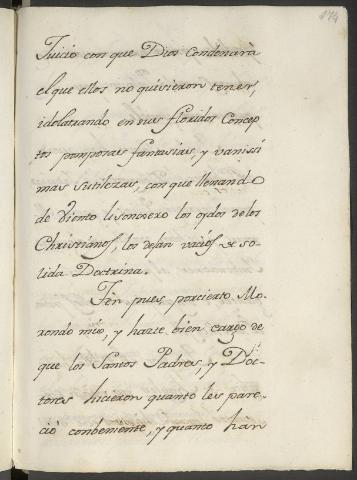 174
Juicio con que Dios condenarà
el que ellos no quisieron tener,
idolatrando en sus floridos Concep
tos pomposas fantasias, y vanissi
mas sutilezas, con que llenando
de viento lisonxero los oydos de los
Christianos, los dejan vacios de so
lida Doctrina.
Ten pues, por cierto Mo-
rondo mio, y hazte bien cargo de
que los Santos Padres, y Doc-
tores hicieron quanto les pare-
ciò conbeniente, y quanto hàn